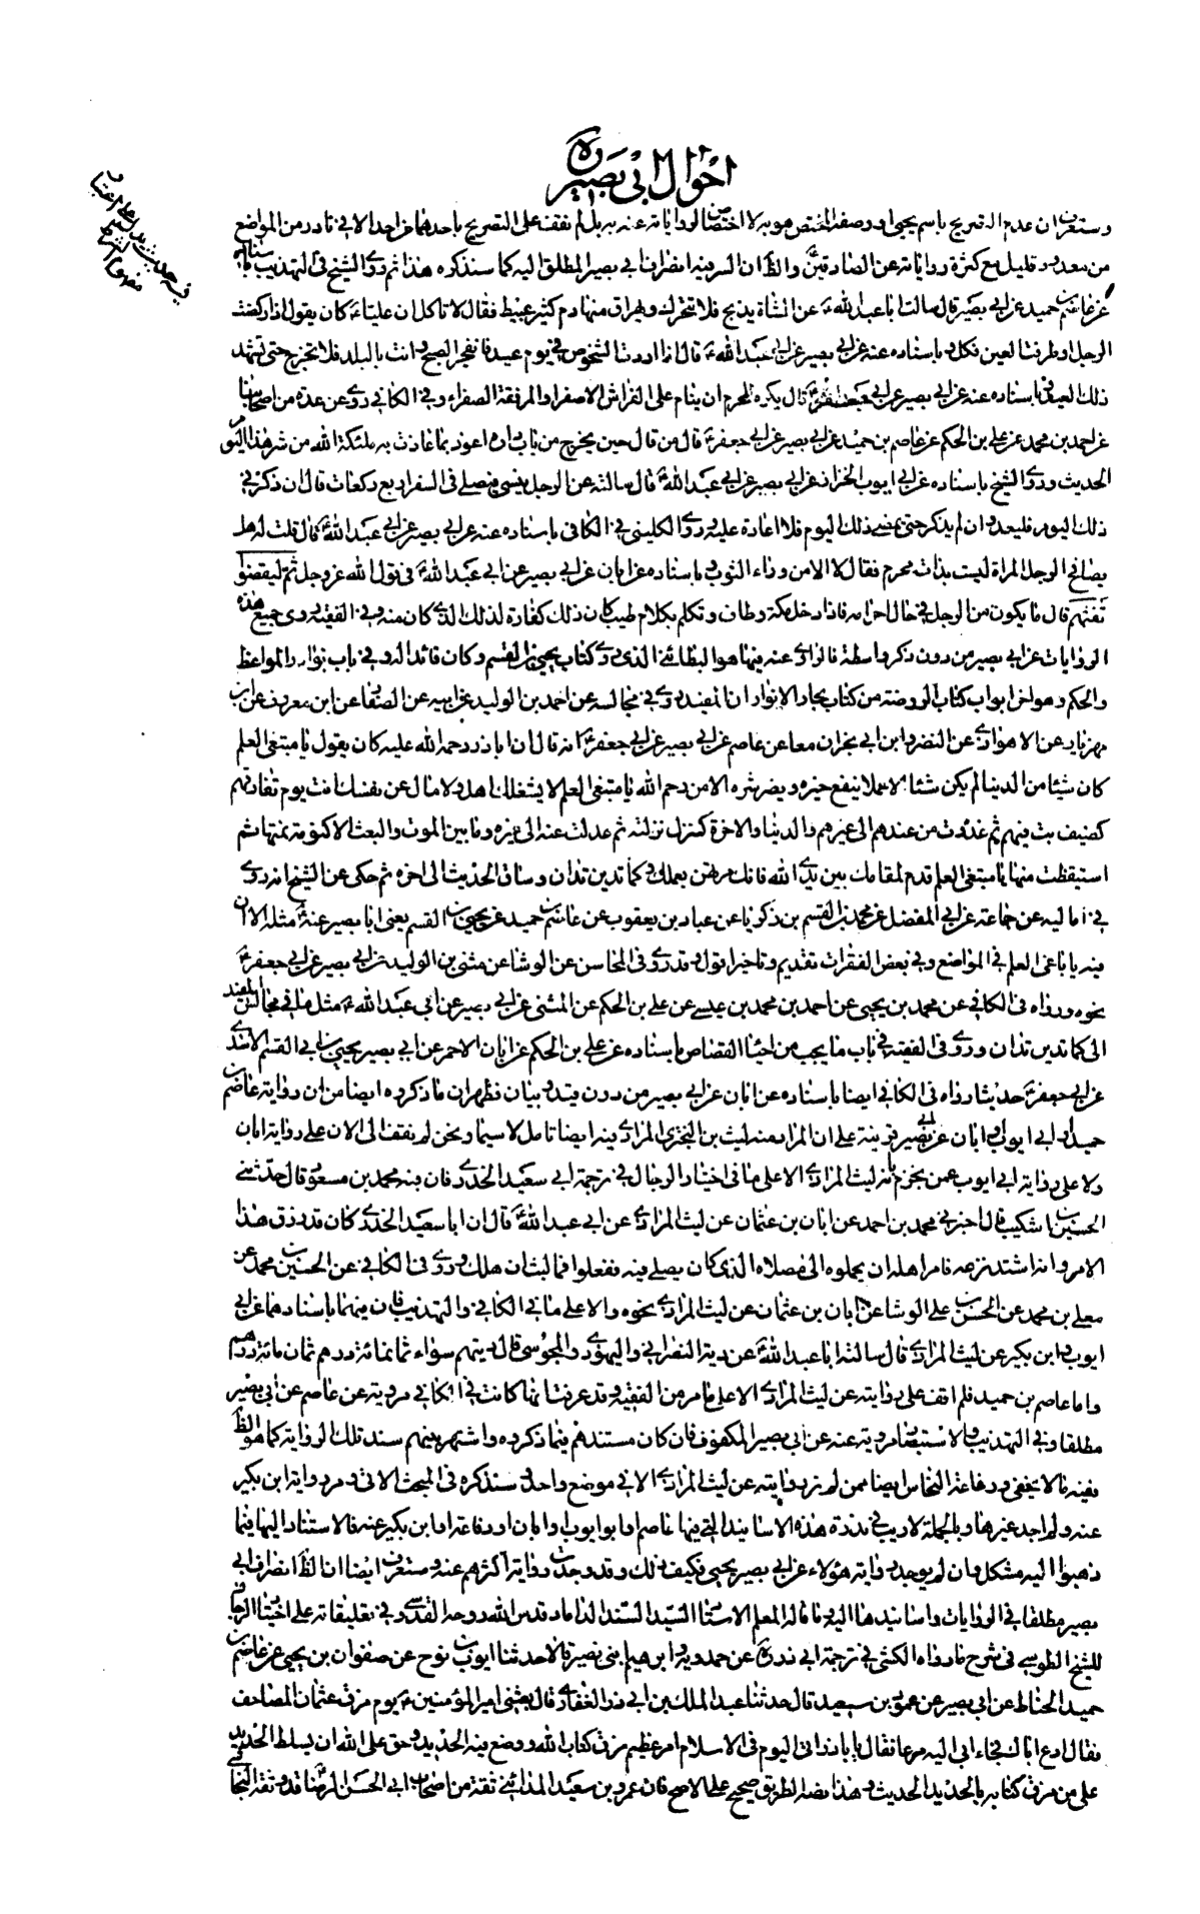 احوال ابی بصیر
فیه حدیث یدل علی اعتبار
مفهوم الشرط
وستعرف ان عدم التصریح باسم یحیی او وصفه المختص هو به لا اختصاص الروایات عنه به بل لم نقف علی التصریح باحدهما من احد الا فی نادر من المواضع
من بعده وقلیل مع کثرة روایاته عن الصادقین والظ ان السر فیه انصراف ابی بصیر المطلق الیه کما سنذکره هذا ثم روی الشیخ فی التهذیب باسناده
عن عاصم بن حمید عن ابی بصیر قال سالت ابا عبد الله ع عن الشاة یذبح فلا تتحرک ویهراق منها دم کثیر عبیط فقال لا تاکل ان علیا ع کان یقول اذا رکضت
الرجل او طرفت العین فکل وباسناده عنه عن ابی بصیر عن ابی عبد الله ع قال اذا اردت الشخوص فی یوم عید فانفجر الصبح وانت بالبلد فلا تخرج حتی تشهد
ذلک العید وباسناده عنه عن ابی بصیر عن ابی جعفر ع قال یکره للمحرم ان ینام علی الفراش الاصفر او المرفقة الصفراء وفی الکافی روی عن عدة من اصحابنا
عن احمد بن محمد عن علی بن الحکم عن عاصم بن حمید عن ابی بصیر عن ابی جعفر ع قال من قال حین یخرج من باب داره اعوذ بما عاذت به ملئکة الله من شر هذا الیوم
الحدیث وروی الشیخ باسناده عن ابی ایوب الخزاز عن ابی بصیر عن ابی عبد الله ع قال سالته عن الرجل ینسی فیصلی فی السفر اربع رکعات قال ان ذکر فی
ذلک الیوم فلیعد وان لم یذکر حتی یمضی ذلک الیوم فلا اعادة علیه وروی الکلینی فی الکافی باسناده عنه عن ابی بصیر عن ابی عبد الله ع قال قلت له هل
یصافح الرجل المراة لیست بذات محرم فقال لا الا من وراء الثوب وباسناده عن ابان عن ابی بصیر عن ابی عبد الله ع فی قول الله عز وجل ثم لیقضوا
تفثهم قال ما یکون من الرجل فی حال احرامه فاذا دخل مکة وطاف وتکلم بکلام طیب کان ذلک کفارة لذلک الذی کان منه وفی الفقیه روی جمیع هذه
الروایات عن ابی بصیر من دون ذکر واسطة فالراوی عنه فیها هو البطائنی الذی روی کتاب یحیی بن القسم وکان قائدا له وفی باب نوادر المواعظ
والحکم وهو اخر ابواب کتاب الروضة من کتاب بحار الانوار ان المفید روی فی مجالسه عن احمد بن الولید عن ابیه عن الصفار عن ابن معروف عن ابن
مهزیار عن الاهوازی عن النضر وابن ابی نجران معا عن عاصم عن ابی بصیر عن ابی جعفر ع انه قال ان اباذر رحمة الله علیه کان یقول یا مبتغی العلم
کان شیئا من الدنیا لم یکن شیئا الا عملا ینفع خیره ویضر شره الا من رحم الله یا مبتغی العلم لا یشغلک اهل ولا مال عن نفسک انت یوم تفارقهم
کضیف بت فیهم ثم غدوت من عندهم الی غیرهم والدنیا والاخرة کمنزل نزلته ثم عدلت عنه الی غیره وما بین الموت والبعث الا کنومة نمتها ثم
استیقظت منها یا مبتغی العلم قدم لمقامک بین یدی الله فانک مرتهن بعملک وکما تدین تدان وساق الحدیث الی اخره ثم حکی عن الشیخ انه روی
فی امالیه عن جماعة عن ابی المفضل عن محمد بن القسم بن زکریا عن عباد بن یعقوب عن عاصم بن حمید عن یحیی بن القسم یعنی ابا بصیر عنه ع مثله الا ان
فیه یا باغی العلم فی المواضع وفی بعض الفقرات تقدیم وتاخیر اقول وقد روی فی المحاسن عن الوشا عن مثنی بن الولید عن ابی بصیر عن ابی جعفر ع
نحوه ورواه فی الکافی عن محمد بن یحیی عن احمد بن محمد بن عیسی عن علی بن الحکم عن المثنی عن ابی بصیر عن ابی عبد الله ع مثل ما فی مجالس المفید
الی کما تدین تدان وروی فی الفقیه فی باب ما یجب من احیاء القصاص باسناده عن علی بن الحکم عن ابان الاحمر عن ابی بصیر یحیی بن ابی القسم الاسدی
عن ابی جعفر ع حدیثا رواه فی الکافی ایضا باسناده عن ابان عن ابی بصیر من دون قید وبیان فظهر ان ما ذکروه ایضا من ان روایة عاصم بن
حمید وابی ایوب وابان عن ابی بصیر قرینة علی ان المراد منه لیث بن البختری المرادی فیه ایضا تامل لا سیما ونحن لم نقف الی الان علی روایة ابان
ولا علی روایة ابی ایوب عمن نجزم بانه لیث المرادی الا علی ما فی اختیار الرجال فی ترجمة ابی سعید الخدری فان فیه محمد بن مسعود قال حدثنی
الحسین بن اشکیب قال اخبرنی محمد بن احمد عن ابان بن عثمان عن لیث المرادی عن ابی عبد الله ع قال ان ابا سعید الخدری کان قد رزق هذا
الامر وانه اشتد نزعه فامر اهله ان یحملوه الی مصلاه الذی کان یصلی فیه ففعلوا فما لبث ان هلک وروی فی الکافی عن الحسین بن محمد عن
معلی بن محمد عن الحسن بن علی الوشا عن ابان بن عثمان عن لیث المرادی نحوه والا علی ما فی الکافی والتهذیب فان فیهما باسنادهما عن ابی
ایوب وابن بکیر عن لیث المرادی قال سالت ابا عبد الله ع عن دیة النصرانی والیهودی والمجوسی قال دیتهم سواء ثمانمائة درهم ثمان مائة درهم
واما عاصم بن حمید فلم اقف علی روایته عن لیث المرادی الا علی ما مر من الفقیه وقد عرفت انها کانت فی الکافی مرویة عن عاصم عن ابی بصیر
مطلقا وفی التهذیب والاستبصار مرویة عنه عن ابی بصیر المکفوف فان کان مستندهم فیما ذکروه واشتهر بینهم سند تلک الروایة کما هو الظ
ففیه ما لا یخفی ورفاعة النخاس ایضا ممن لم نر روایته عن لیث المرادی الا فی موضع واحد سنذکره فی المبحث الاتی ومر روایة ابن بکیر
عنه ولم اجد غیرها وبالجملة لا ریب فی ندرة هذه الاسانید التی فیها عاصم او ابو ایوب او ابان او رفاعة او ابن بکیر عنه فالاستناد الیها فیما
ذهبوا الیه مشکل وان لم یوجد روایة هؤلاء عن ابی بصیر یحیی فکیف ذلک وقد وجدت روایة اکثرهم عنه وستعرف ایضا ان الظ انصراف ابی
بصیر مطلقا فی الروایات واسانیدها الیه وما قاله المعلم الاستاد السید السند الداماد قدس الله روحه القدسی فی تعلیقاته علی اختیار الرجال
للشیخ الطوسی فی شرح ما رواه الکشی فی ترجمة ابی ذر ره عن حمدویه وابرهیم ابنی نصیر قالا حدثنا ایوب بن نوح عن صفوان بن یحیی عن عاصم بن
حمید الحناط عن ابی بصیر عن عمرو بن سعید قال حدثنا عبد الملک بن ابی ذر الغفاری قال بعثنی امیر المؤمنین ع یوم مزق عثمان المصاحف
فقال ادع اباک فجاء ابی الیه مسرعا فقال یا باذر اتی الیوم فی الاسلام امر عظیم مزق کتاب الله ووضع فیه الحدید وحق علی الله ان یسلط الحدید
علی من مزق کتابه بالحدید الحدیث وهذا نصه الطریق صحیح علی الاصح فان عمرو بن سعید المداینی ثقة من اصحاب ابی الحسن الرضا ع قد وثقه النجاشی